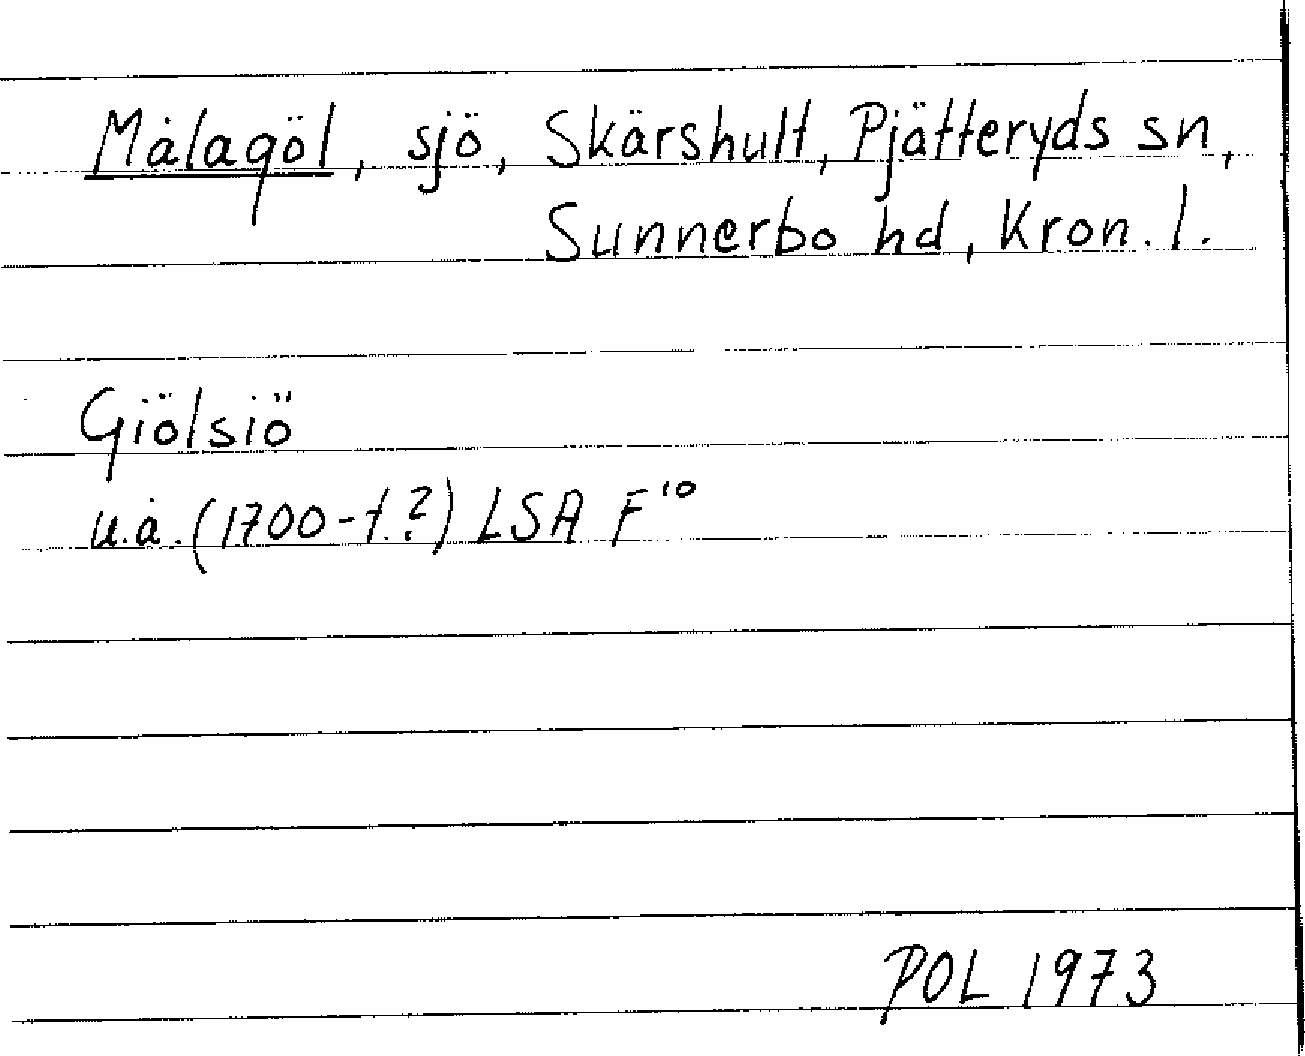 Målagöl, sjö, Skärshult, Pjätteryds sn,
Sunnerbo hd, Kron. l.
Giölsiö
u.å. (1700-t.?) LSA F¹⁰
POL 1973